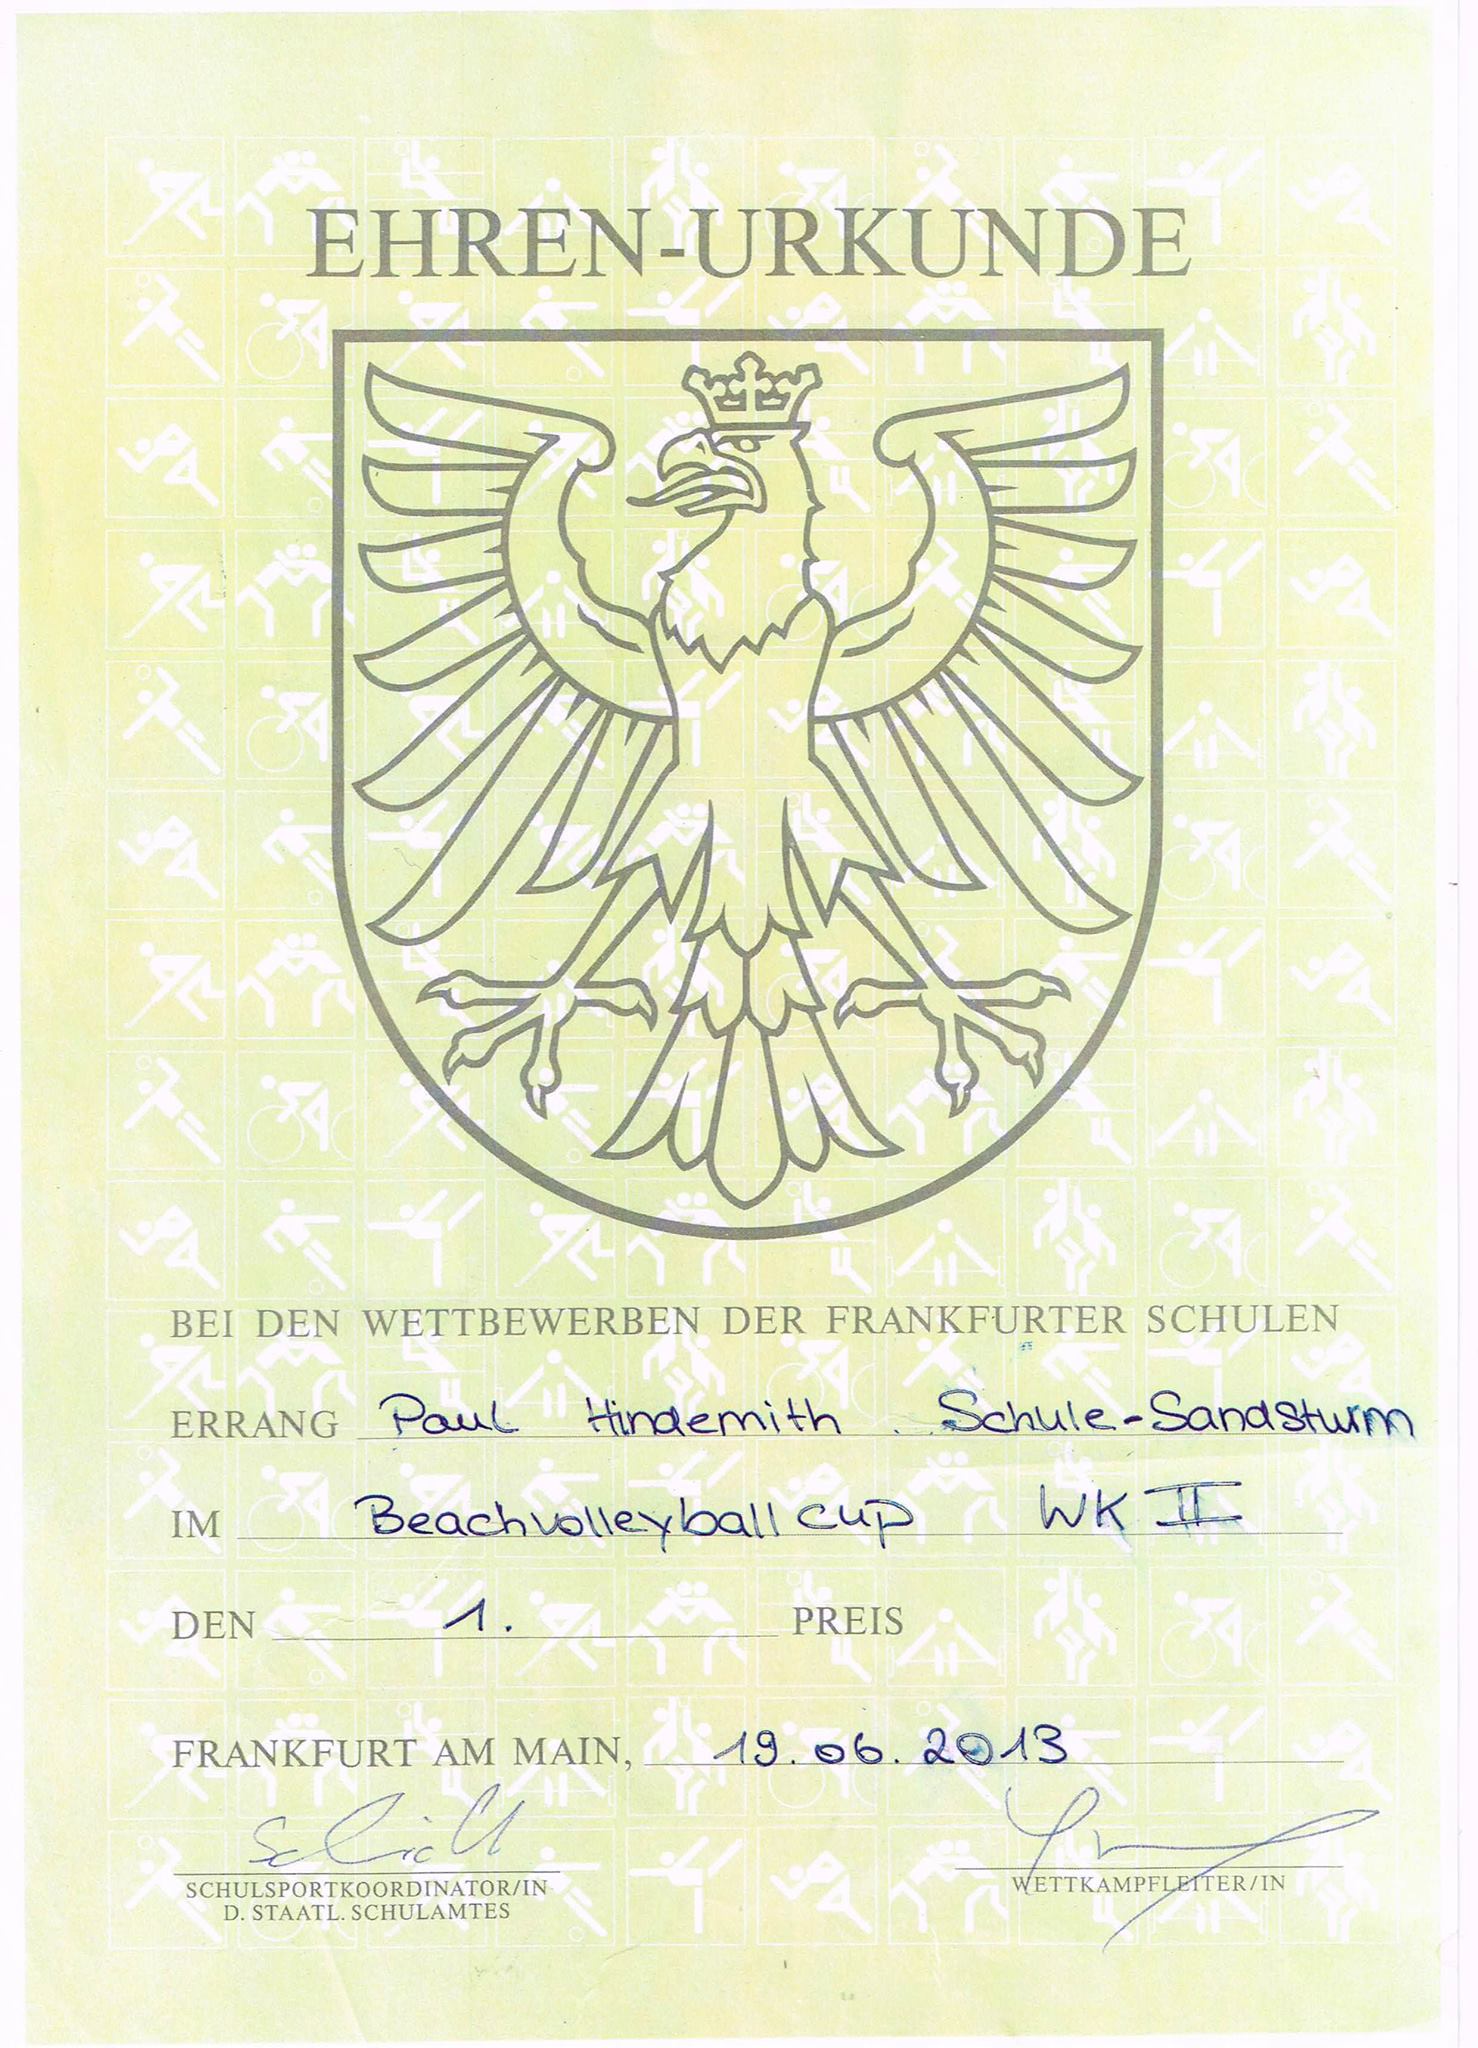 EHREN-URKUNDE
BEI DEN WETTBEWERBEN DER FRANKFURTER SCHULEN
ERRANG Paul Hindemith Schule-Sandsturm
IM Beachvolleyball cup WK II
DEN 1. PREIS
FRANKFURT AM MAIN, 19.06.2013
SCHULSPORTKOORDINATOR/IN
D. STAATL. SCHULAMTES
WETTKAMPFLEITER/IN